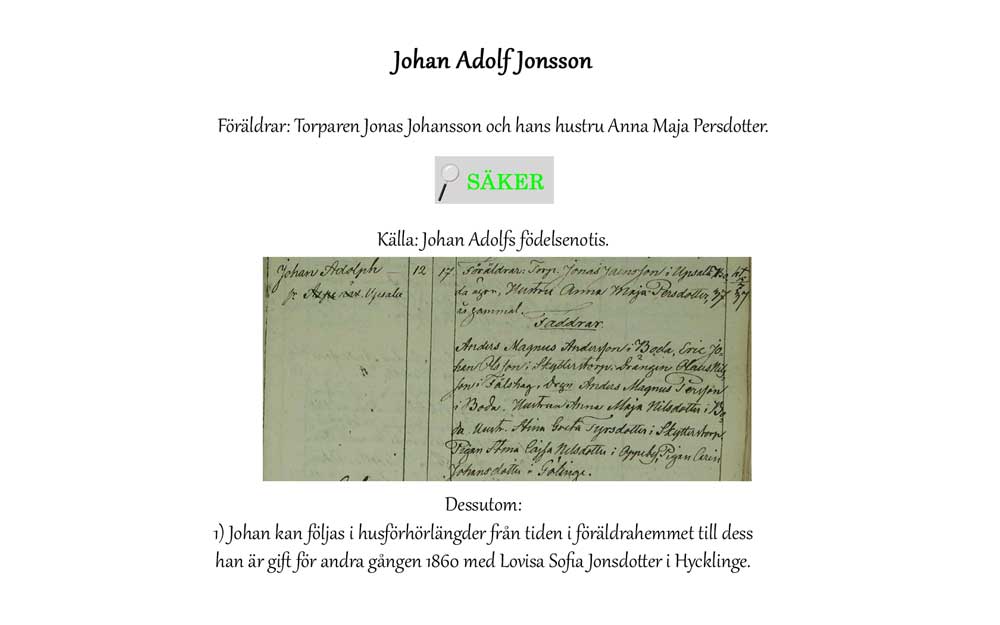 Johan Adolf Jonsson
Föräldrar: Torparen Jonas Johansson och hans hustru Anna Maja Persdotter.
SÄKER
Källa: Johan Adolfs födelsenotis.
Johan Adolph 12 17 Föräldrar: Torp. Jonas i Upsala
Upsala da ägor, Hustru Anna Maja Persdotter, 37 37
år gammal.
Faddrar.
Anders Magnus Andersson i Boda, Eric Jo-
han Olsson i Skytterstorp, Drängen Claus Nil-
son i Fålehag, Anders Magnus Persson
i Boda. Hustrun Anna Maja Nilsdotter i Bo-
da. Hustr. Stina Greta Tyrsdotter i Skytterstorp
Pigan Stina Cajsa Nilsdotter i Pigan Carin
Johansdotter i
Dessutom:
1) Johan kan följas i husförhörlängder från tiden i föräldrahemmet till dess
han är gift för andra gången 1860 med Lovisa Sofia Jonsdotter i Hycklinge.